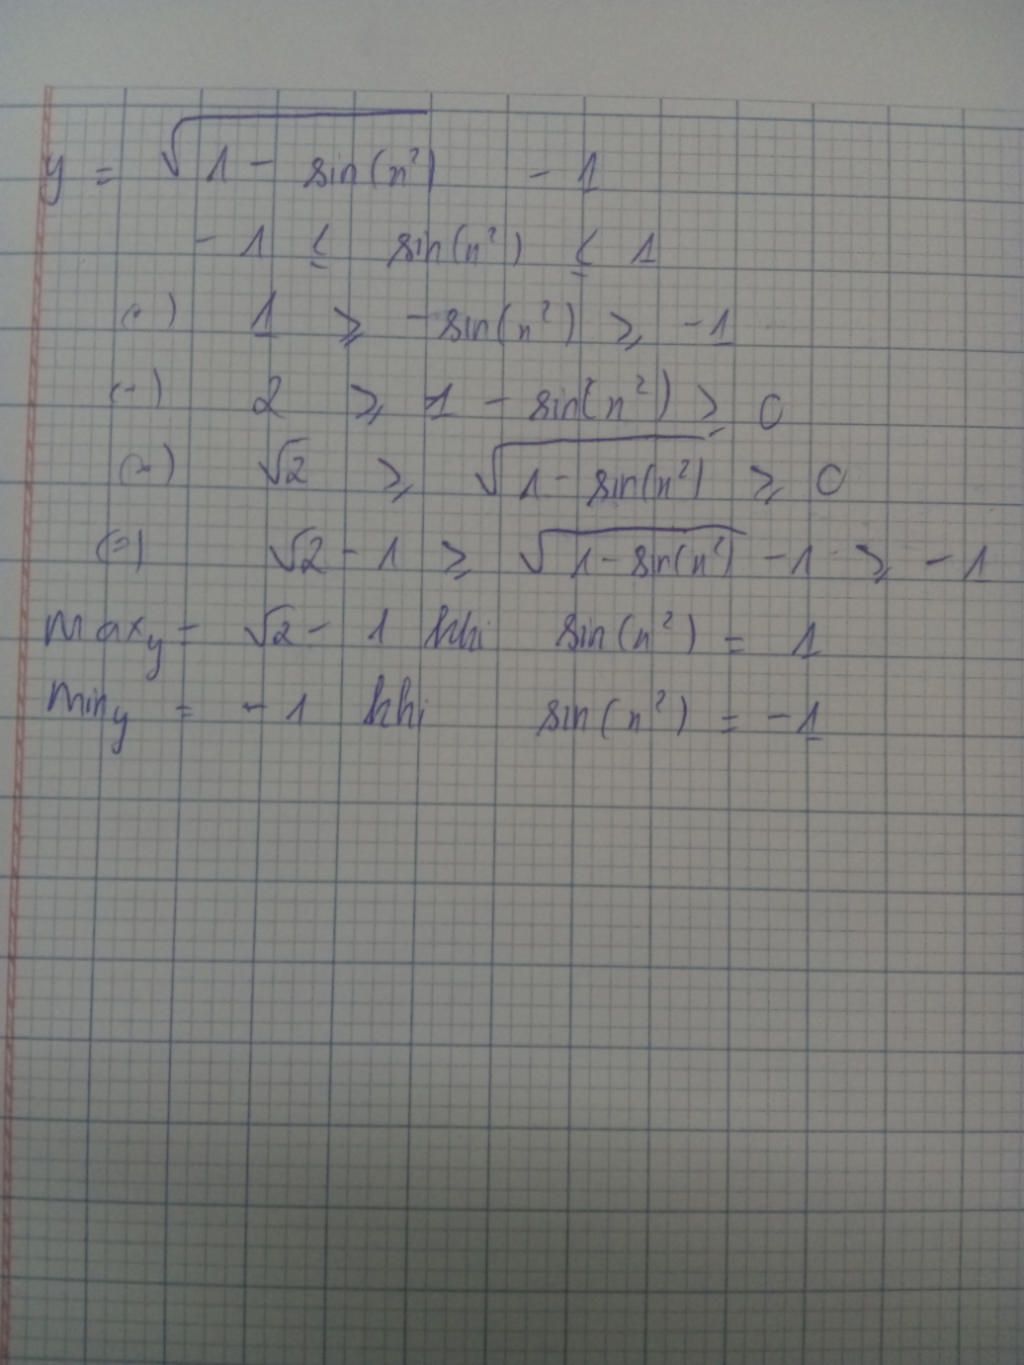 y = √(1 - sin(x²)) - 1
- 1 ≤ sin(x²) ≤ 1
(=) 1 ≥ - sin(x²) ≥ -1
(=) 2 ≥ 1 - sin(x²) ≥ 0
(=) √2 ≥ √(1 - sin(x²)) ≥ 0
(=) √2 - 1 ≥ √(1 - sin(x²)) - 1 ≥ - 1
Max y = √2 - 1 khi sin(x²) = 1
Min y = - 1 khi sin(x²) = - 1